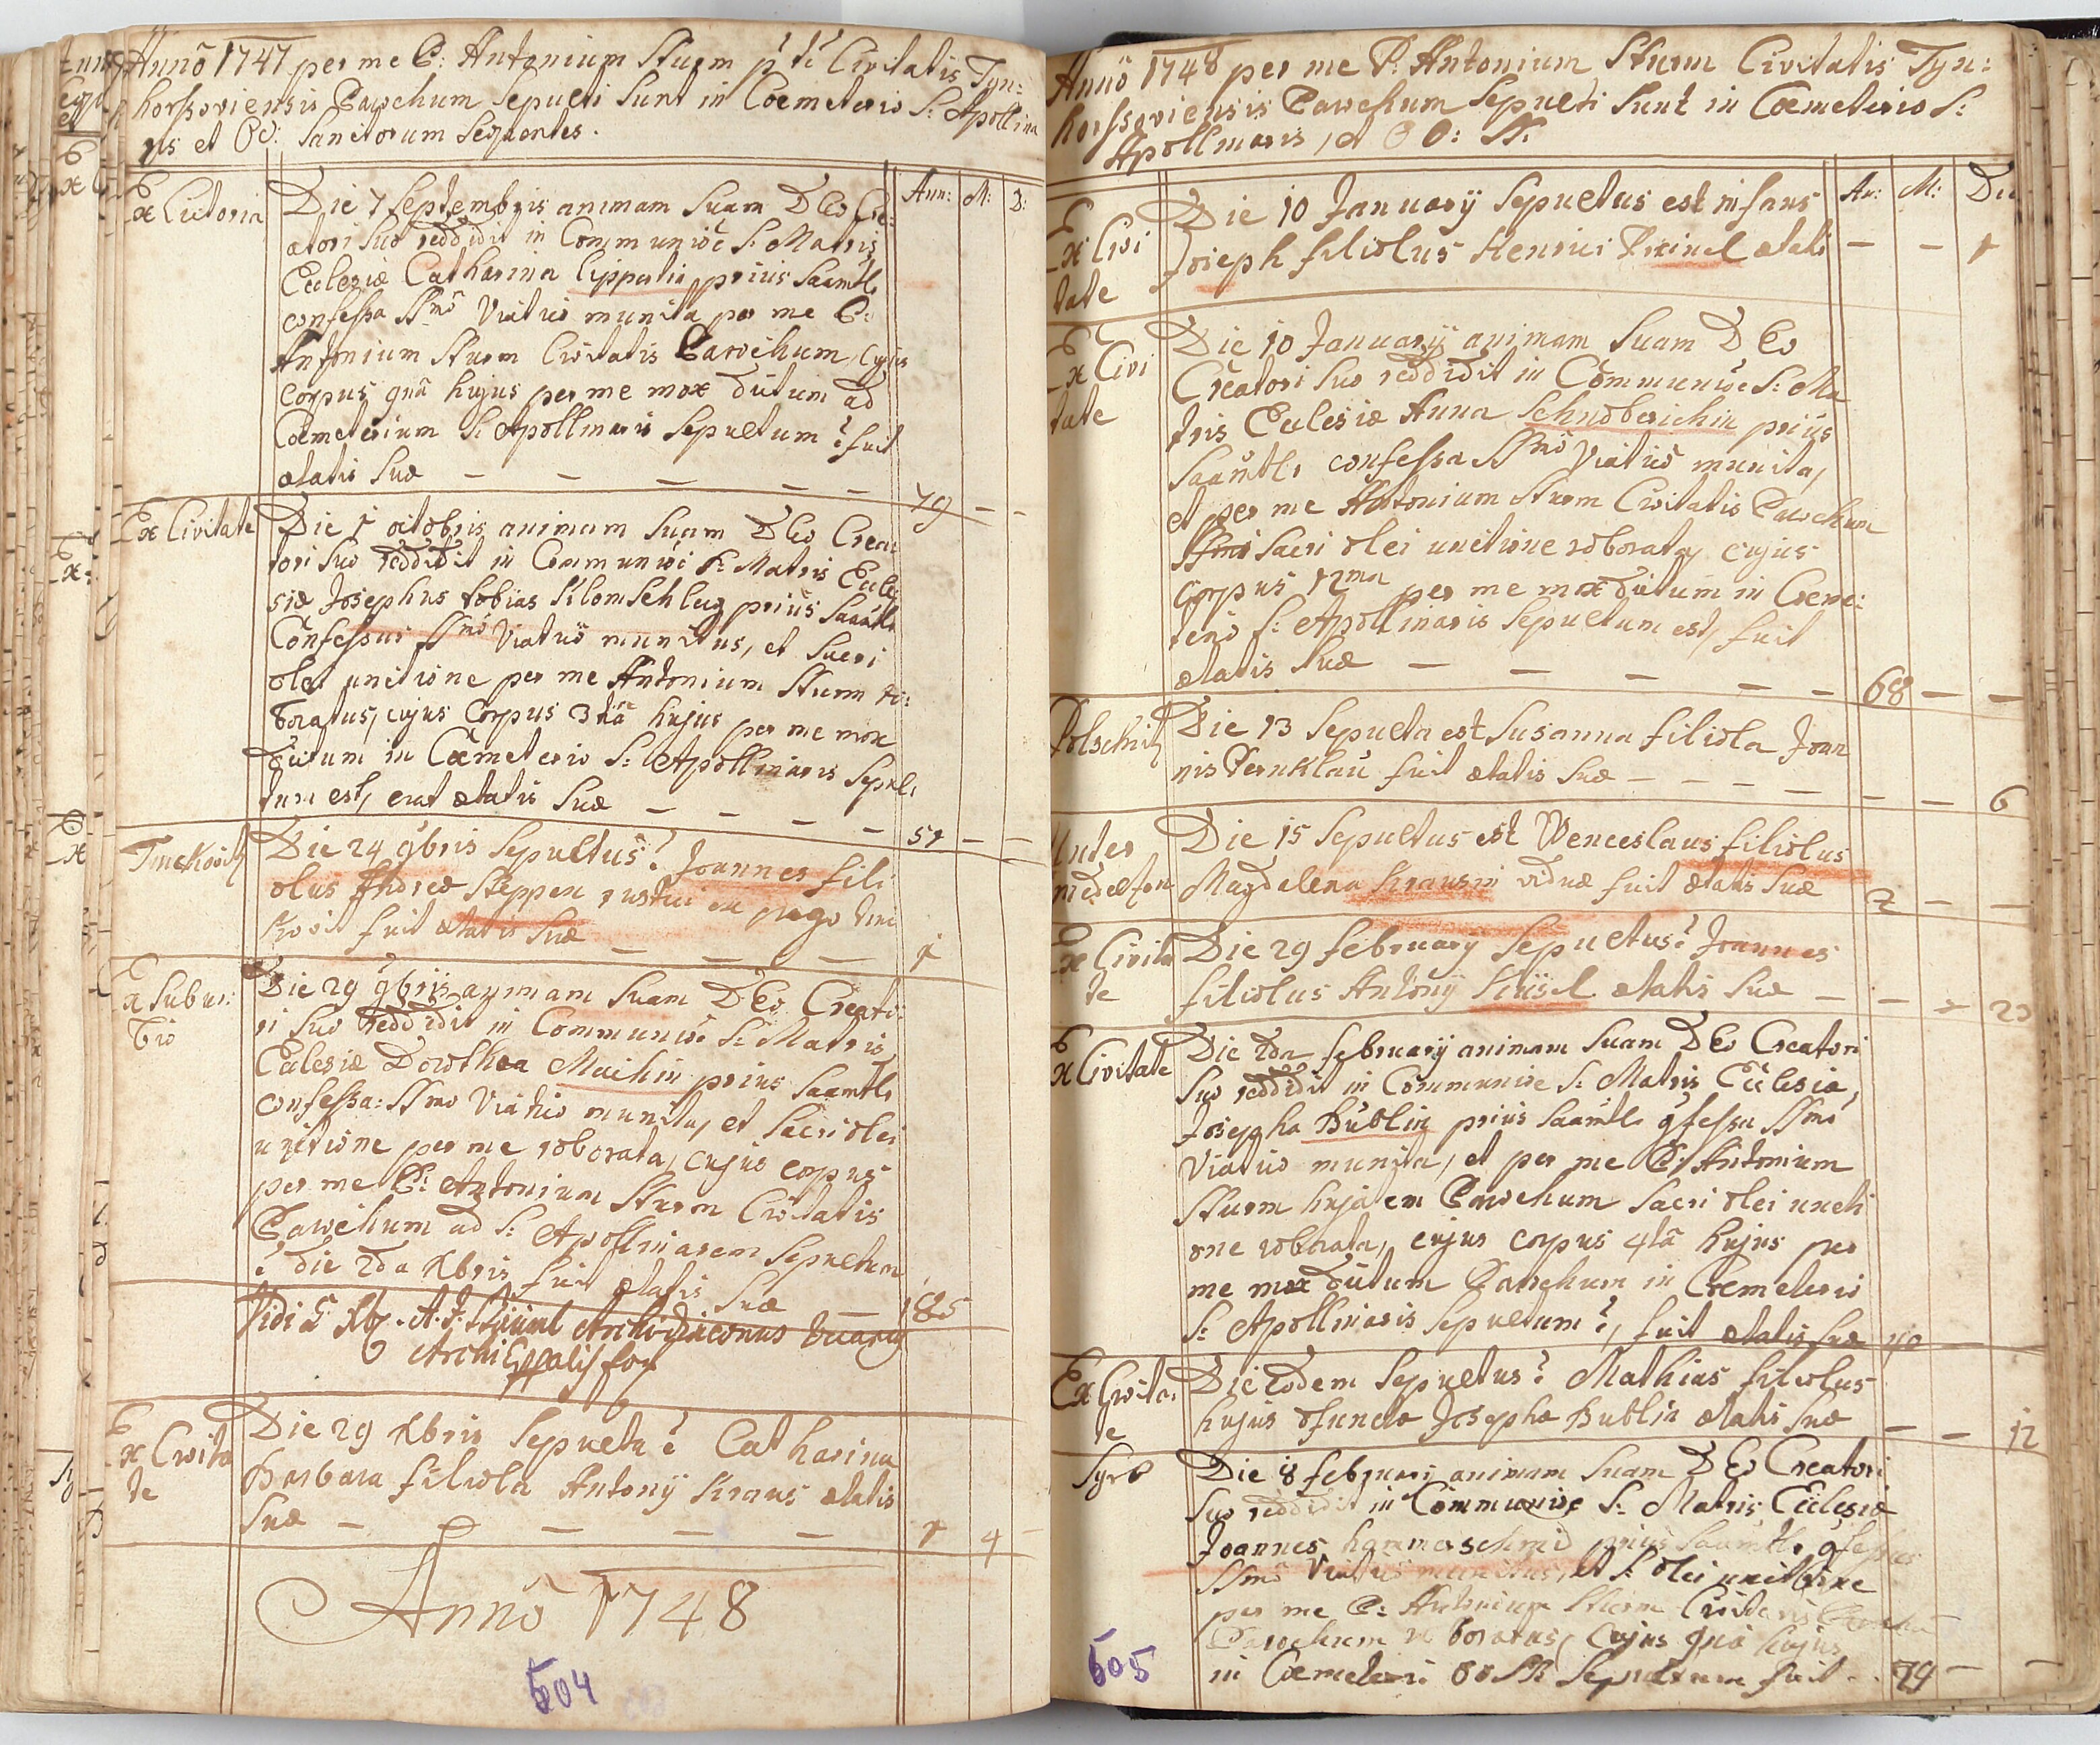 Anno 1747 per me P: Antonium Sturm p: t: Civitatis Tyn:
horssoviensis Parochum Sepulti Sunt in Coemeterio S: Apollina
ris et OO: Sanctorum Sequentes.
Ann: M: D:
Ex Lictoria
Die 7 Septembris animam Suam DEo Cre:
atori Suo reddidit in Communioe S: Matris
Eclesiæ Catharina Lippertin prius Saamtlr
confessa SSmo Viatico munita per me P:
Antonium Sturm Civitatis Parochum, Cujus
Corpus 9na hujus per me mox dictum ad
Coemeterium S: Apollinaris Sepultum e fuit
ætatis Suæ — — — — — 79 — —
Ex Civitate
Die 1 octobris animam Suam DEo Crea
tori Suo reddidit in Communioe S: Matris Ecle
siæ Josephus Tobias Klomschlag prius Saamtlr
Confessus SSmo Viatico munitus, et Sacri
olei unctione per me Antonium Sturm ro:
boratus, cujus Corpus 3tia hujus per me mox
dictum in Coemeterio S: Apollinaris Sepul
tum est, erat ætatis Suæ — — — — 51 — —
Die 24 9bris Sepultus e Joannes fili
olus Andreæ Steppen rustici ex pago
fuit ætatis Suæ — — — 1
Ex Subur:
bio
Die 29 9bris animam Suam DEo Creato:
ri Suo reddidit in Communioe S: Matris
Eclesiæ Dorothea Maichin prius Saamtlr
confessa: SSmo Viatico munita, et Sacri olei
unctione per me roborata, cujus corpus
per me P: Antonium Sturm Civitatis
Parochum ad S: Apollinarem Sepultum
e die 2da Xbris fuit ætatis Suæ — 85
Vidi 5 Xbr. A. F. Archidiaconus
Archi
Ex Civita
te
Die 29 Xbris Sepulta e Catharina
Barbara filiola Antonij Kraus ætatis
Suæ — — — — — 1 4 —
Anno 1748
504
Anno 1748 per me P: Antonium Sturm Civitatis Tyn:
horssoviensis Parochum Sepulti Sunt in Coemeterio S:
Apollinaris, et OO: SS:
An: M: Die
Ex Civi
tate
Die 10 January Sepultus est infans
Joseph filiolus Henrici ætatis — — 1
Ex Civi
tate
Die 10 January animam Suam DEo
Creatori Suo reddidit in Communioe S: Ma
tris Eclesiæ Anna Schnoberichin prius
Saamtlr confessa SSmo Viatico munita,
et per me Antonium Sturm Civitatis Parochum
SSmi Sacri olei unctione roborata, cujus
Corpus 12ma per me mox dictum in Coeme:
terio S: Apollinaris Sepultum est, fuit
ætatis Suæ — — — — — 68 — —
Polschitz
Die 13 Sepulta est Susanna filiola Joan
nis Pernklau fuit ætatis Suæ — — — — — — 6
Unter
medelzen
Die 15 Sepultus est Wenceslaus filiolus
Magdalena Krausin viduæ fuit ætatis Suæ 2 — —
Ex Civita
te
Die 29 february Sepultus e Joannes
filiolus Antony ætatis Suæ — — —
Ex Civitate
Die 2da february animam Suam DEo Creatori
Suo reddidit in Communioe S: Matris Eclesiæ,
Josepha Bublin prius Saamtlr 9fessa SSmo
Viatico munita, et per me P: Antonium
Sturm hujatem Parochum Sacri olei uncti
one roborata, cujus corpus 4ta hujus per
me mox dictum Parochum in Coemeterio
S: Apollinaris Sepultum e, fuit ætatis Suæ 40
Ex Civita
te
Die Eodem Sepultus e Mathias filiolus
hujus defunctæ Josepha Bublin ætatis Suæ — — 12
Syrb
Die 8 february animam Suam DEo Creatori
Suo reddidit in Communioe S: Matris Eclesiæ
Joannes hammerschmid prius Saamtlr 9fessus
SSmo Viatico munitus, et S: olei unctione
per me P: Antonium Sturm Civitatis
Parochum roboratus, Cujus 9na hujus
in Coemeterio OO SS Sepultum fuit — 74 — —
505